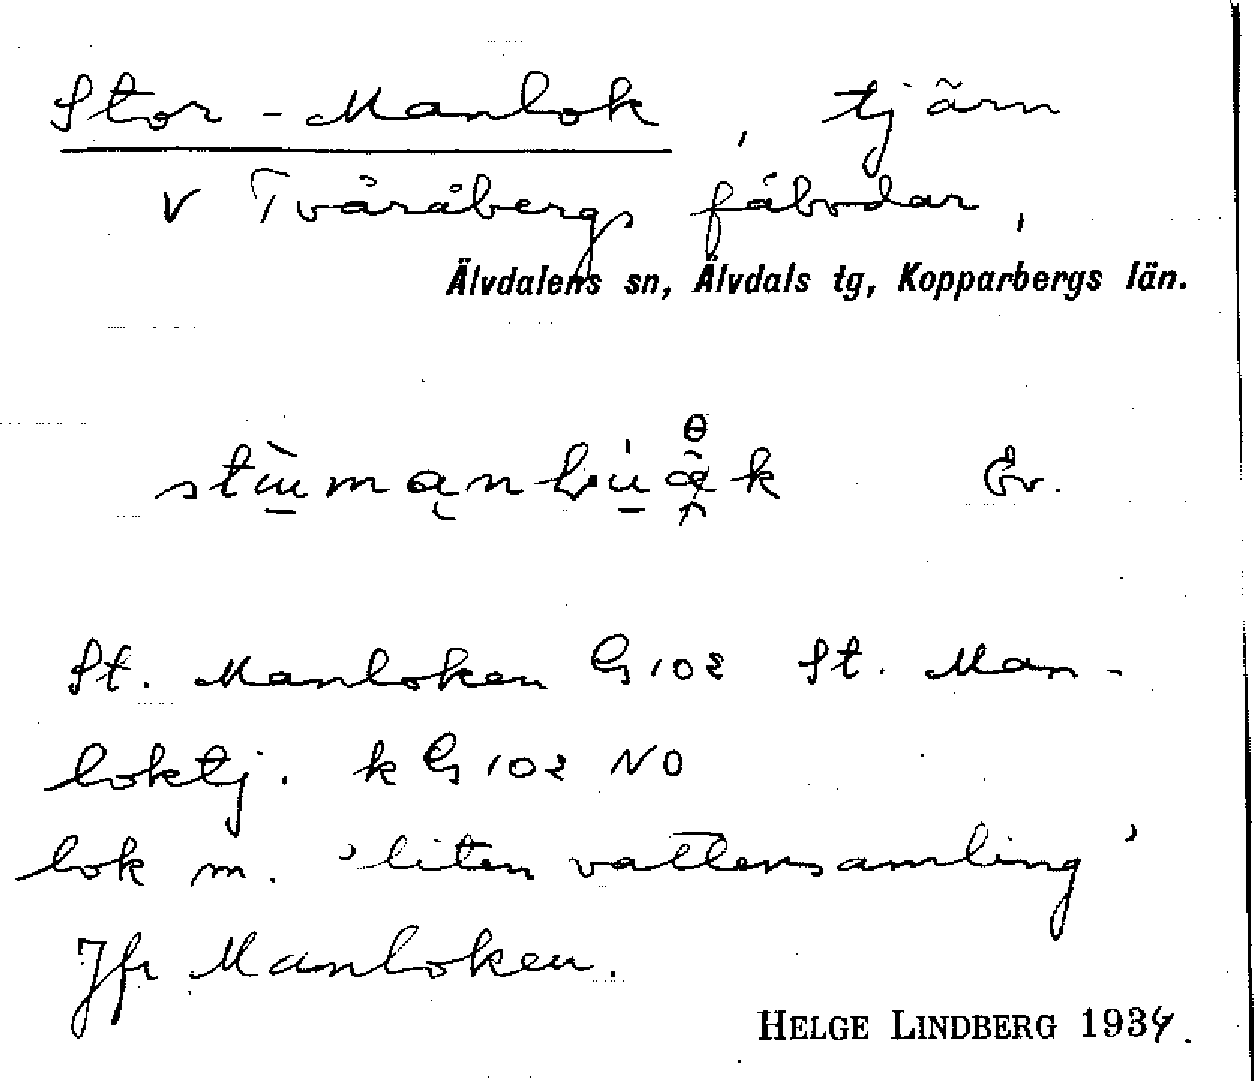 Stor-Manlok, tjärn
v Tvåråbergs fäbodar,
Älvdalens sn, Älvdals tg, Kopparbergs län.
Ev.
St. Manloken G 102 St. Man-
loktj. k G 102 NO
lok m. 'liten vattensamling'
Jfr Manloken.
HELGE LINDBERG 1934.